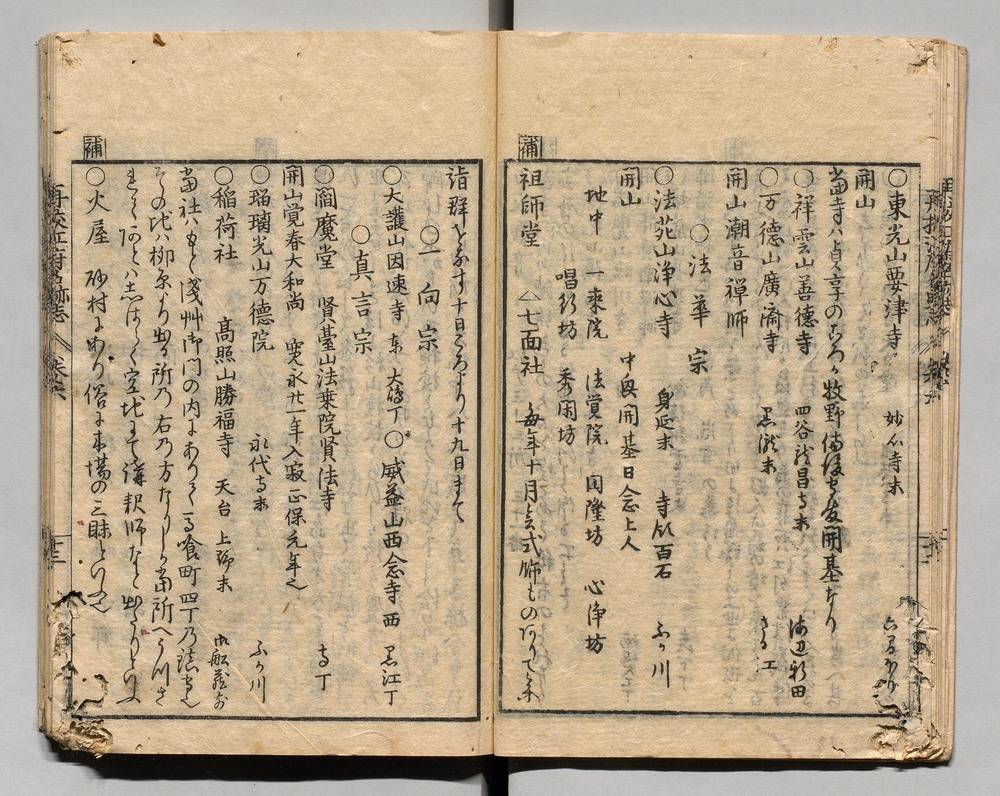 ○東光山要津寺 妙心寺末 六間ほり
開山
当寺ハ貞享のころ牧野備後守殿開基なり
○祥雲山善徳寺 四谷龍昌寺末 海辺新田
○万徳山廣済寺 黒瀧末 さる江
開山潮音禅師
○法華宗
○法苑山浄心寺 身延末 寺領百石 ふか川
開山 中興開基日念上人
地中 一乗院 法覚院 円隆坊 心浄坊
唱行坊 秀閑坊
補
祖師堂 △七面社 毎年十月会式飾ものありて参
詣群をなす十日ころより十九日まて
○一向宗
○大護山因速寺 東 大嶋丁○威益山西念寺 西 黒江丁
○真言宗
○閻魔堂 賢臺山法乗院賢法寺 寺丁
開山覚春大和尚 寛永廿一年入寂 正保元年也
○瑠璃光山万徳院 永代寺末 ふか川
○稲荷社 髙照山勝福寺 天台 上野末 御舩蔵前
当社ハもと浅艸御門の内にありて馬喰町四丁乃
その地ハ柳原より出る所乃右乃方なりしか当所へうつさ
れてあとハしはらく空地にて講釈師なと出たりといふ
補
○火屋 砂村にあり俗に木場の三昧といふ
再校江府名跡志 巻六